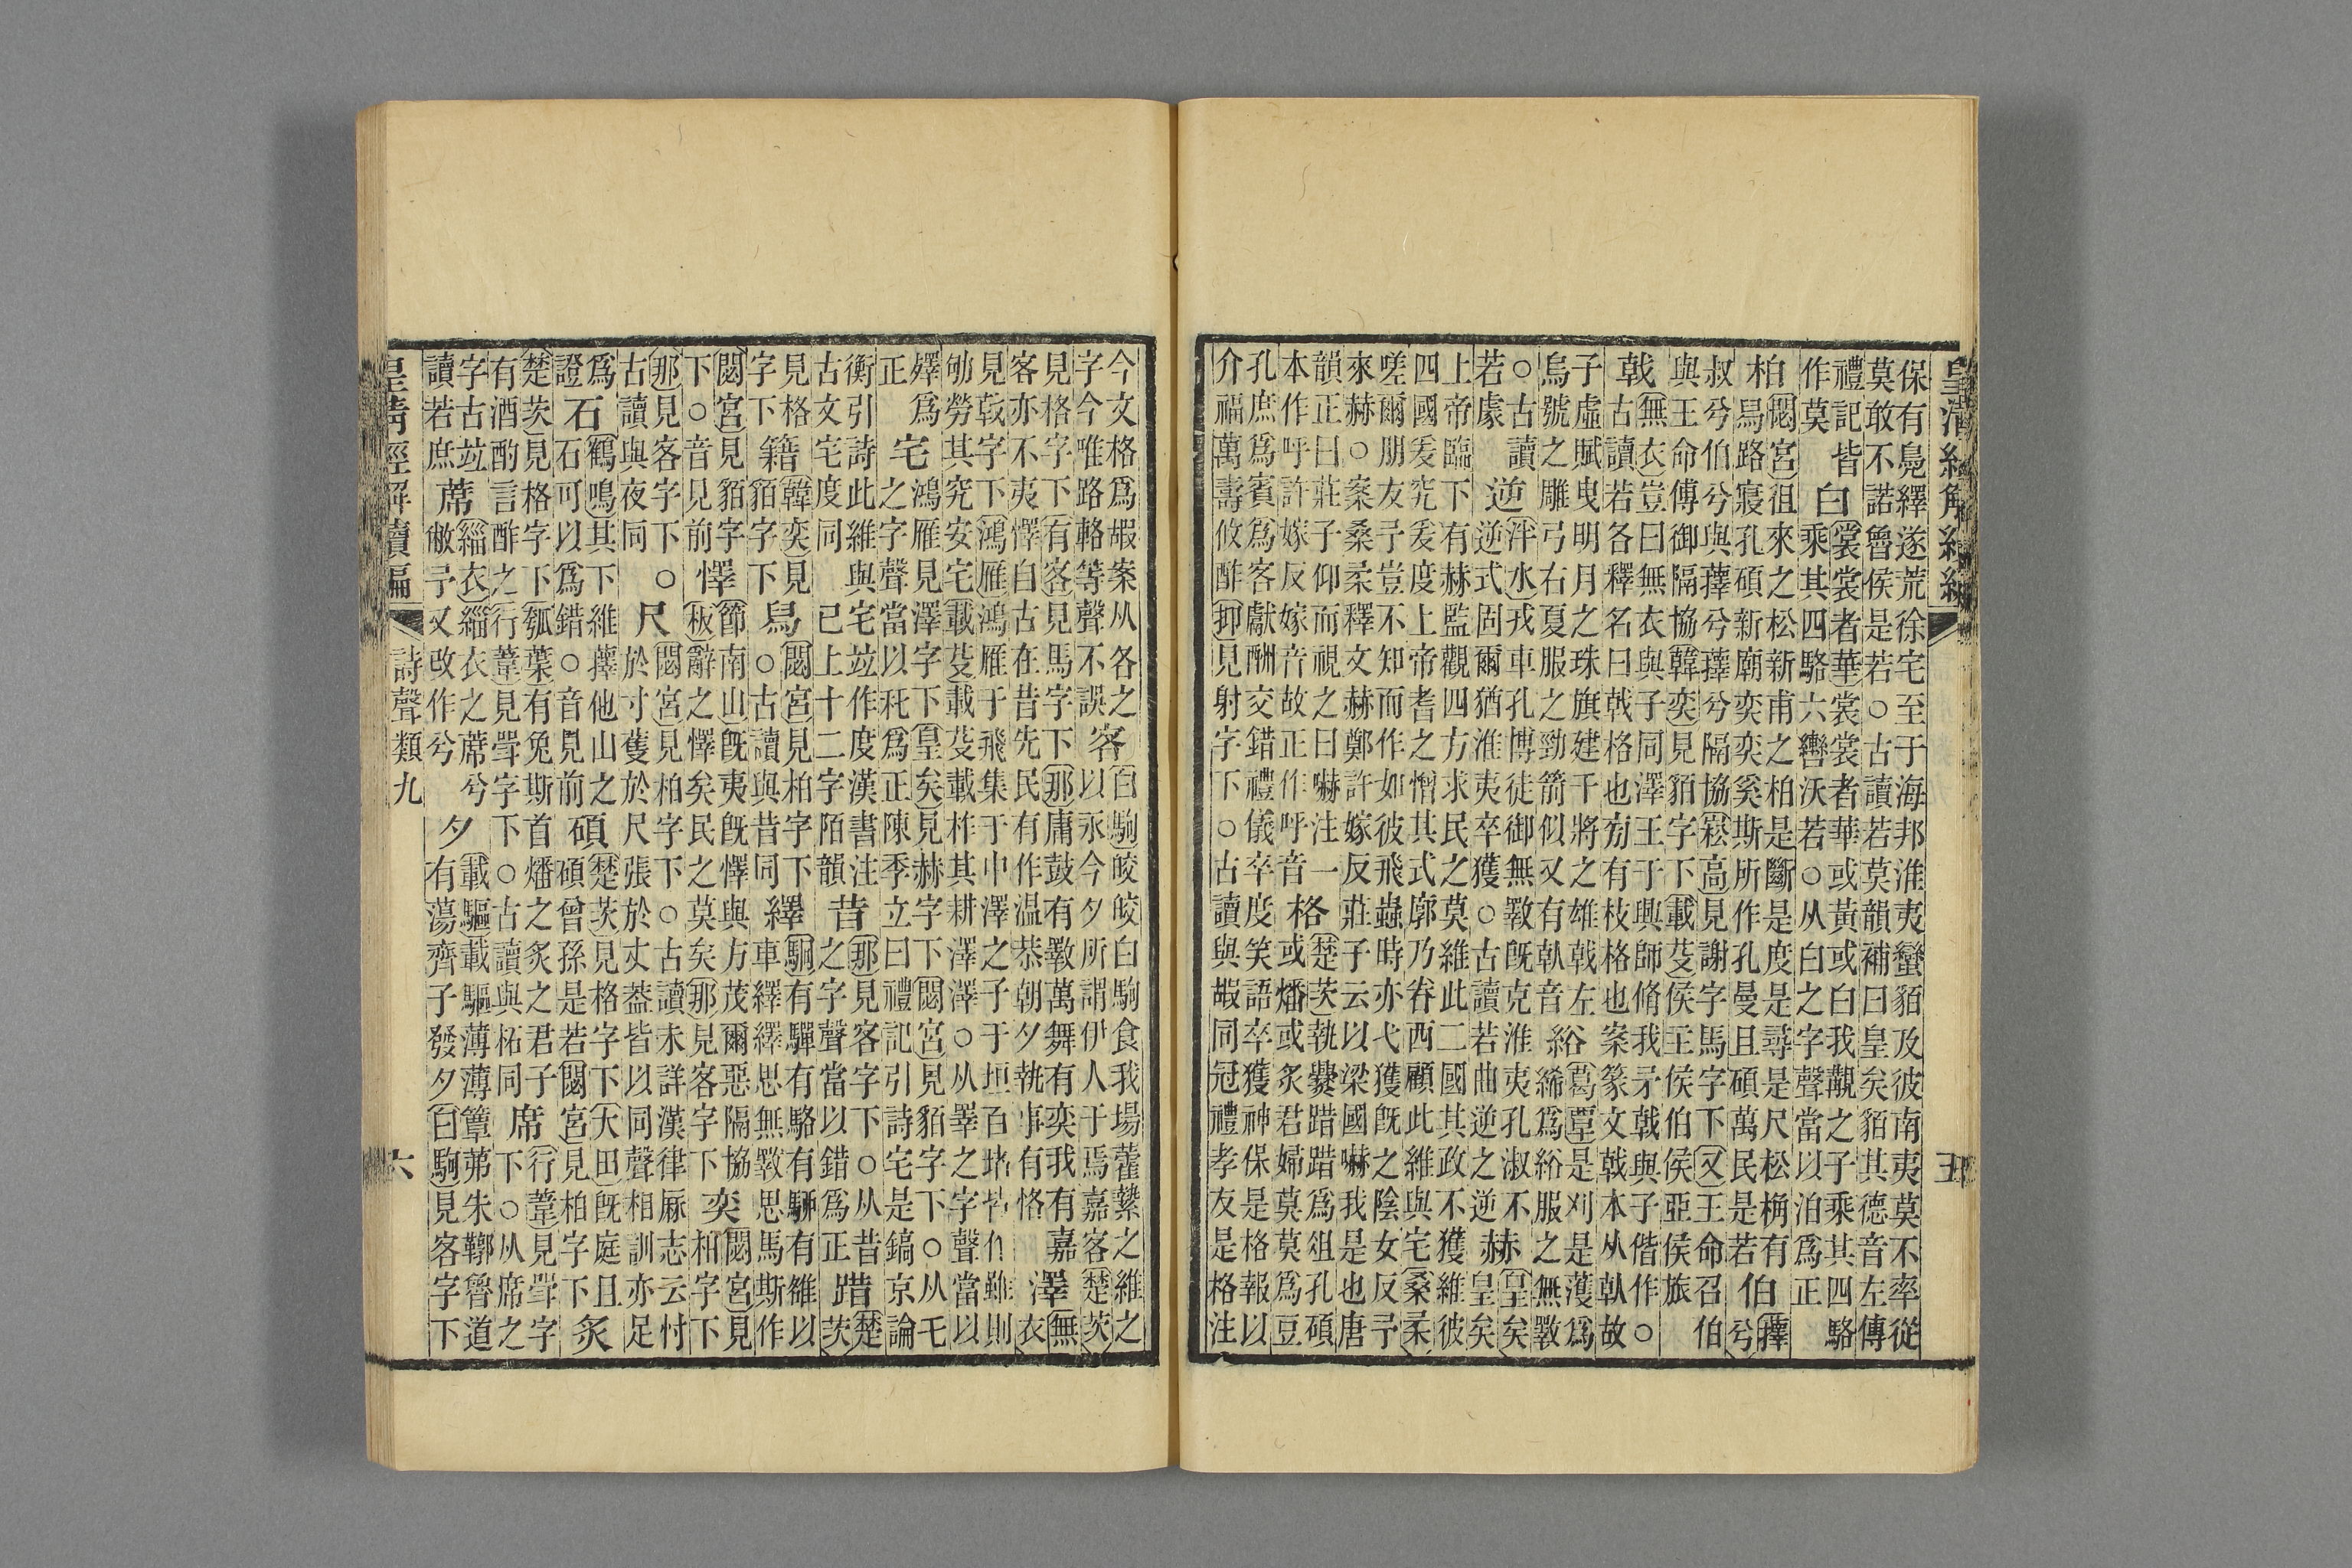 皇清經解續編
五
保有鳧繹遂荒徐宅至于海邦淮夷蠻貊及彼南夷莫不率從
莫敢不諾魯侯是若○古讀若莫韻補曰皇矣貊其德音左傳
禮記皆
作莫
白
裳裳者華裳裳者華或黃或白我覯之子乘其四駱
乘其四駱六轡沃若○从白之字聲當以泊爲正
柏
閟宮徂來之松新甫之柏是斷是度是尋是尺松桷有
舄路寢孔碩新廟奕奕奚斯所作孔曼且碩萬民是若
伯
蘀
兮
叔兮伯兮與蘀兮蘀兮隔協崧高見謝字馬字下又王命召伯
與王命傅御隔協韓奕見貊字下載芟侯王侯伯侯亞侯旅
戟
無衣豈曰無衣與子同澤王于興師脩我矛戟與子偕作○
古讀若各釋名曰戟格也旁有枝格也案篆文戟本从倝故
子虛賦曳明月之珠旗建干將之雄戟左
烏號之雕弓右夏服之勁箭似又有倝音
綌
葛覃是刈是濩爲
絺爲綌服之無斁
○古讀
若䖒
逆
泮水戎車孔博徒御無斁既克淮夷孔淑不
逆式固爾猶淮夷卒獲○古讀若曲逆之逆
赫
皇矣
皇矣
上帝臨下有赫監觀四方求民之莫維此二國其政不獲維彼
四國爰究爰度上帝耆之憎其式廓乃眷西顧此維與宅桑柔
嗟爾朋友予豈不知而作如彼飛蟲時亦弋獲既之陰女反予
來赫○案桑柔釋文赫鄭許嫁反莊子云以梁國嚇我是也唐
韻正曰莊子仰而視之曰嚇注一
本作呼許嫁反嫁音故正作呼音
格
楚茨執爨踖踖爲俎孔碩
或燔或炙君婦莫莫爲豆
孔庶爲賓爲客獻酬交錯禮儀卒度笑語卒獲神保是格報以
介福萬壽攸酢抑見射字下○古讀與嘏同冠禮孝友是格注
今文格爲嘏案从各之
字今唯路輅等聲不誤
客
白駒皎皎白駒食我場藿縶之維之
以永今夕所謂伊人于焉嘉客楚茨
見格字下有客見馬字下那庸鼓有斁萬舞有奕我有嘉
客亦不夷懌自古在昔先民有作温恭朝夕執事有恪
澤
無
衣
見戟字下鴻雁鴻雁于飛集于中澤之子于垣百堵皆作雖則
劬勞其究安宅載芟載芟載柞其耕澤澤○从睪之字聲當以
嬕爲
正
宅
鴻雁見澤字下皇矣見赫字下閟宮見貊字下○从乇
之字聲當以秅爲正陳季立曰禮記引詩宅是鎬京論
衡引詩此維與宅竝作度漢書注
古文宅度同已上十二字陌韻
昔
那見客字下○从昔
之字聲當以錯爲正
踖
楚
茨
見格
字下
籍
韓奕見
貊字下
舄
閟宮見柏字下
○古讀與昔同
繹
駉有驒有駱有騮有雒以
車繹繹思無斁思馬斯作
閟宮見貊字
下○音見前
懌
節南山既夷既懌與方茂爾惡隔協
板辭之懌矣民之莫矣那見客字下
奕
閟宮見
柏字下
那見客字下○
古讀與夜同
尺
閟宮見柏字下○古讀未詳漢律厤志云忖
於寸蒦於尺張於丈葢皆以同聲相訓亦足
爲
證
石
鶴鳴其下維蘀他山之
石可以爲錯○音見前
碩
楚茨見格字下大田既庭且
碩曾孫是若閟宮見柏字下
炙
楚茨見格字下瓠葉有兔斯首燔之炙之君子
有酒酌言酢之行葦見咢字下○古讀與柘同
席
行葦見咢字
下○从席之
字古竝
讀若庶
蓆
緇衣緇衣之蓆兮
敝予又改作兮
夕
載驅載驅薄薄簟茀朱鞹魯道
有蕩齊子發夕白駒見客字下
皇清經解續編
詩聲類九
六